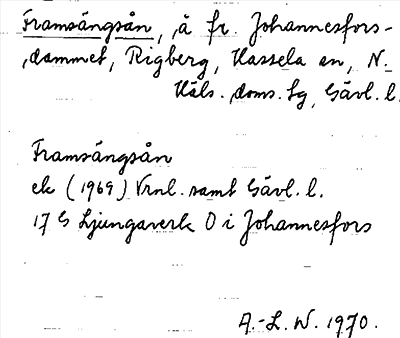 Framsängsån, å fr. Johannesfors-
dammet, Rigberg, Hassela sn, N.
Häls. doms. tg, Gävl. l.
Framsängsån
ek (1969) Vrnl. samt Gävl. l.
17 G Ljungaverk O i Johannesfors
A.-L. W. 1970.